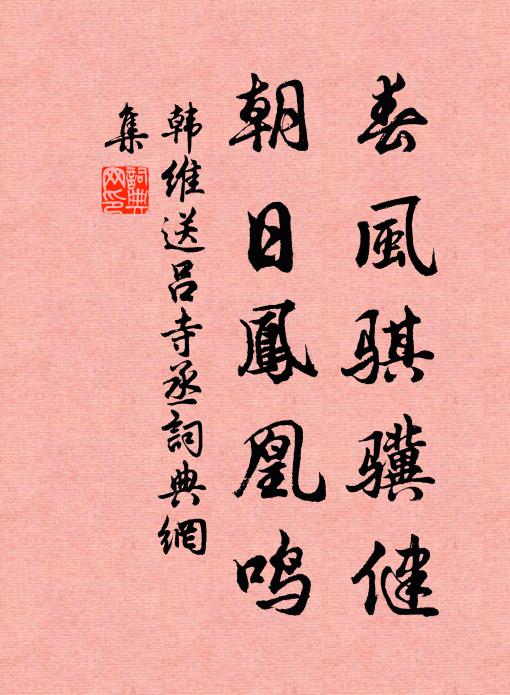 春風骐骥健
朝日鳳凰鸣
韩维送吕寺丞詞典網
集
詞典网印